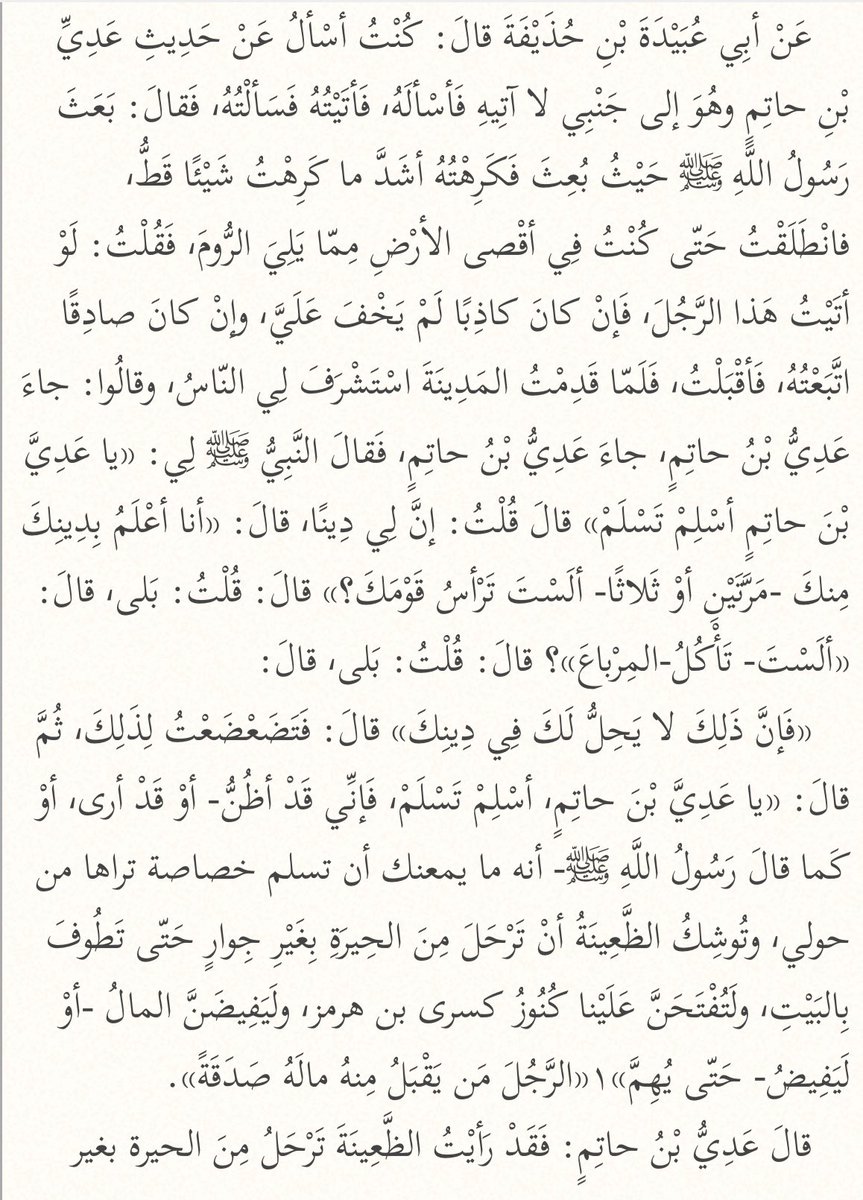 عَنْ أبِي عُبَيْدَةَ بْنِ حُذَيْفَةَ قالَ: كُنْتُ أسْألُ عَنْ حَدِيثِ عَدِيِّ
بْنِ حاتِمٍ وهُوَ إلى جَنْبِي لا آتِيهِ فَأسْألَهُ، فَأتَيْتُهُ فَسَألْتُهُ، فَقالَ: بَعَثَ
رَسُولُ اللَّهِ ﷺ حَيْثُ بُعِثَ فَكَرِهْتُهُ أشَدَّ ما كَرِهْتُ شَيْئًا قَطُّ،
فانْطَلَقْتُ حَتّى كُنْتُ فِي أقْصى الأرْضِ مِمّا يَلِيَ الرُّومَ، فَقُلْتُ: لَوْ
أتَيْتُ هَذا الرَّجُلَ، فَإنْ كانَ كاذِبًا لَمْ يَخْفَ عَلَيَّ، وإنْ كانَ صادِقًا
اتَّبَعْتُهُ، فَأقْبَلْتُ، فَلَمّا قَدِمْتُ المَدِينَةَ اسْتَشْرَفَ لِي النّاسُ، وقالُوا: جاءَ
عَدِيُّ بْنُ حاتِمٍ، جاءَ عَدِيُّ بْنُ حاتِمٍ، فَقالَ النَّبِيُّ ﷺ لِي: «يا عَدِيَّ
بْنَ حاتِمٍ أسْلِمْ تَسْلَمْ» قالَ قُلْتُ: إنَّ لِي دِينًا، قالَ: «أنا أعْلَمُ بِدِينِكَ
مِنكَ -مَرَّتَيْنِ أوْ ثَلاثًا- ألَسْتَ تَرْأسُ قَوْمَكَ؟» قالَ: قُلْتُ: بَلى، قالَ:
«ألَسْتَ- تَأْكُلُ-المِرْباعَ»؟ قالَ: قُلْتُ: بَلى، قالَ:
«فَإنَّ ذَلِكَ لا يَحِلُّ لَكَ فِي دِينِكَ» قالَ: فَتَضَعْضَعْتُ لِذَلِكَ، ثُمَّ
قالَ: «يا عَدِيَّ بْنَ حاتِمٍ، أسْلِمْ تَسْلَمْ، فَإنِّي قَدْ أظُنُّ- أوْ قَدْ أرى، أوْ
كَما قالَ رَسُولُ اللَّهِ ﷺ- أنه ما يمعنك أن تسلم خصاصة تراها من
حولي، وتُوشِكُ الظَّعِينَةُ أنْ تَرْحَلَ مِنَ الحِيرَةِ بِغَيْرِ جِوارٍ حَتّى تَطُوفَ
بِالبَيْتِ، ولَتُفْتَحَنَّ عَلَيْنا كُنُوزُ كسرى بن هرمز، ولَيَفِيضَنَّ المالُ -أوْ
لَيَفِيضُ- حَتّى يُهِمَّ»١«الرَّجُلَ مَن يَقْبَلُ مِنهُ مالَهُ صَدَقَةً».
قالَ عَدِيُّ بْنُ حاتِمٍ: فَقَدْ رَأيْتُ الظَّعِينَةَ تَرْحَلُ مِنَ الحيرة بغير